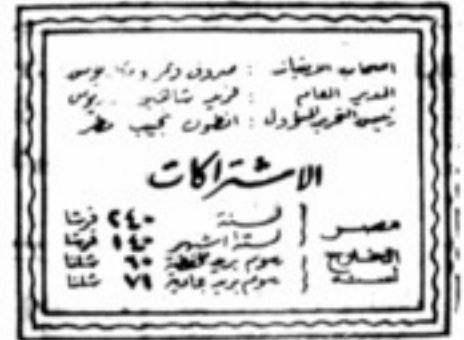 اصحاب الامتياز : صروف ونمر ومكاريوس
المدير العام : فريد شاهين
رئيس التحرير المسؤول : انطون نجيب مطر
الاشتراكات
مصر { لسنة ٢٤٠ قرشا
لستة اشهر ١٤٠ قرشا
الخارج لسنة { رسوم بريد ٦٠ شلنا
رسوم بريد عادية ٧٦ شلنا